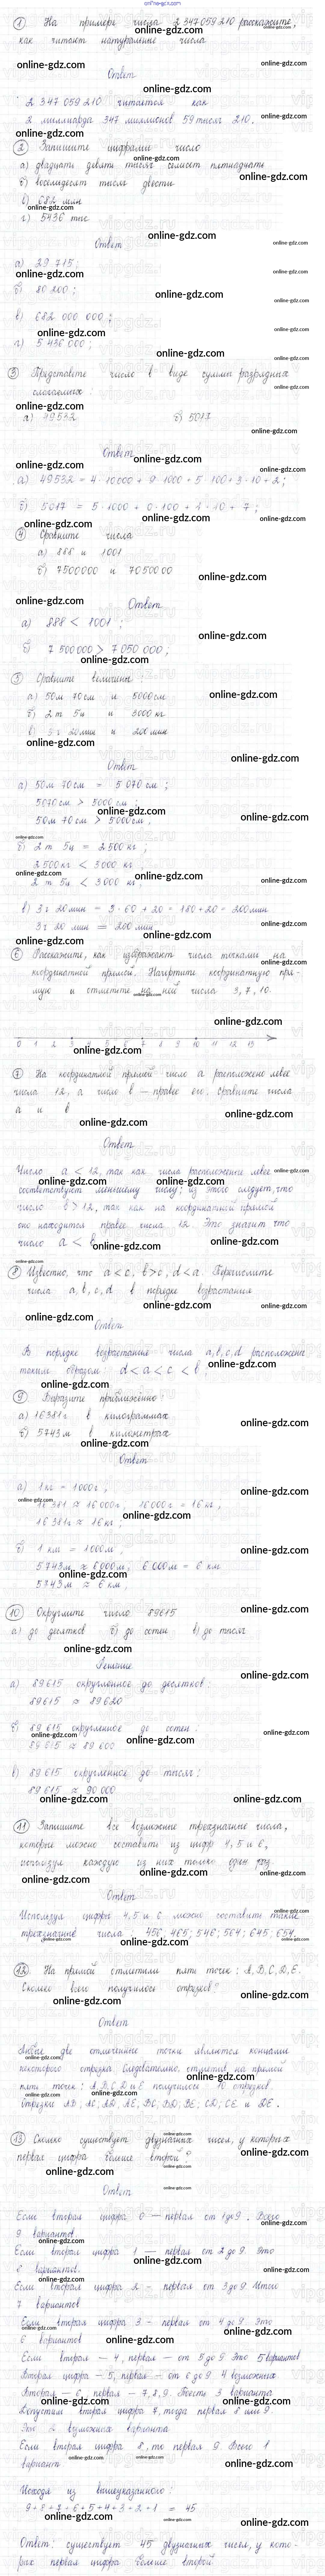 online-gdz.com
① На примере числа 2 347 059 210 расскажите,
как читают натуральные числа
Ответ
2 347 059 210 читается как
2 миллиарда 347 миллионов 59 тысяч 210.
② Запишите цифрами число
а) двадцать девять тысяч семьсот пятнадцать
б) восемьдесят тысяч двести
в) 682 млн
г) 5436 тыс
Ответ
а) 29 715;
б) 80 200;
в) 682 000 000;
г) 5 436 000;
③ Представьте число в виде суммы разрядных
слагаемых:
а) 49532 б) 5017
Ответ
а) 49532 = 4·10000 + 9·1000 + 5·100 + 3·10 + 2;
б) 5017 = 5·1000 + 0·100 + 1·10 + 7;
④ Сравните числа
а) 888 и 1001
б) 7500000 и 7050000
Ответ
а) 888 < 1001;
б) 7 500 000 > 7 050 000;
⑤ Сравните величины:
а) 50м 70см и 5000см
б) 2т 5ц и 3000кг
в) 3ч 20мин и 200мин
Ответ
а) 50м 70см = 5 070см;
5070см > 5000см;
50м 70см > 5000см;
б) 2т 5ц = 2500кг;
2500кг < 3000кг;
2т 5ц < 3000кг;
в) 3ч 20мин = 3·60 + 20 = 180 + 20 = 200мин
3ч 20мин = 200мин
⑥ Расскажите, как изображают числа точками на
координатной прямой. Начертите координатную пря-
мую и отметьте на ней числа 3, 7, 10.
0 1 2 3 4 5 6 7 8 9 10 11 12 13
⑦ На координатной прямой число а расположено левее
числа 12, а число в – правее его. Сравните числа
а и в
Ответ
Число а < 12, так как числа расположенные левее
соответствуют меньшему числу; из этого следует, что
число в > 12, так как на координатной прямой
оно находится правее числа 12. Это значит что
число а < в
⑧ Известно, что а < с, в > с, d < а. Перечислите
числа а, в, с, d в порядке возрастания
Ответ
В порядке возрастания числа а, в, с, d расположены
таким образом: d < а < с < в
⑨ Выразите приближённо:
а) 16381г в килограммах
б) 5743м в километрах
Ответ
а) 1кг = 1000г;
16 381 ≈ 16 000г; 16000г = 16кг;
16 381г ≈ 16кг;
б) 1 км = 1000м;
5743м ≈ 6000м; 6 000м = 6 км
5743м ≈ 6 км;
⑩ Округлите число 89615
а) до десятков б) до сотен в) до тысяч
Решение
а) 89615 округленное до десятков:
89615 ≈ 89620
б) 89 615 округленное до сотен:
89 615 ≈ 89 600
в) 89 615 округленное до тысяч:
89 615 ≈ 90 000
⑪ Запишите все возможные трехзначные числа,
которые можно составить из цифр 4, 5 и 6,
используя каждую из них только один раз
Ответ
Используя цифры 4, 5 и 6 можно составить такие
трехзначные числа 456; 465; 546; 564; 645; 654.
⑫ На прямой отметили пять точек: A, B, C, D, E.
Сколько всего получилось отрезков?
Ответ
две отмеченные точки являются концами
некоторого отрезка. Следовательно, отметив на прямой
пять точек: A, B, C, D и E получилось 10 отрезков
Отрезки AB; AC; AD; AE; BC; BD; BE; CD; CE и DE.
⑬ Сколько существует двузначных чисел, у которых
первая цифра больше второй?
Ответ
Если вторая цифра 0 – первая от 1 до 9. Всего
9 вариантов
Если вторая цифра 1 – первая от 2 до 9. Это
8 вариантов.
Если вторая цифра 2 – первая от 3 до 9. Итого
7 вариантов
Если вторая цифра 3 – первая от 4 до 9. Это
6 вариантов
Если вторая – 4, первая – от 5 до 9. Это 5 вариантов
Вторая цифра – 5, первая – от 6 до 9. 4 возможных.
Вторая – 6, первая – 7, 8, 9. То есть 3 варианта
Допустим вторая цифра 7, тогда первая 8 или 9.
Это 2 возможных варианта
Если вторая цифра 8, то первая 9. Всего 1
вариант
Исходя из вышеуказанного:
9 + 8 + 7 + 6 + 5 + 4 + 3 + 2 + 1 = 45
Ответ: существует 45 двузначных чисел, у кото-
рых первая цифра больше второй.